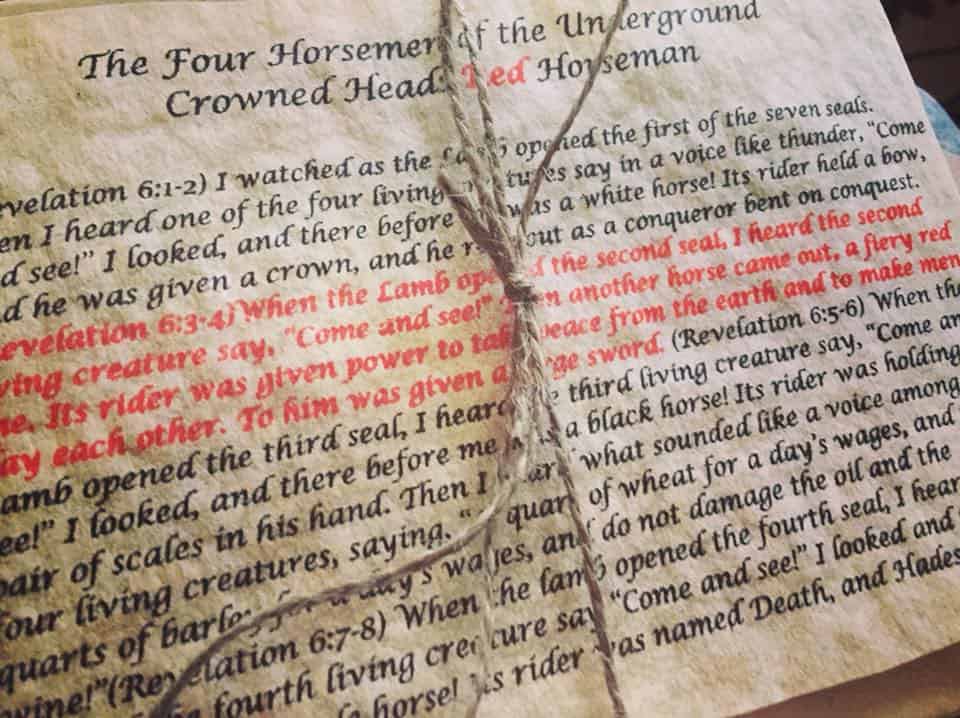 The Four Horsemen of the Underground
Crowned Heads Red Horseman
velation 6:1-2) I watched as the opened the first of the seven seals.
en I heard one of the four living say in a voice like thunder, "Come
d see!" I looked, and there before was a white horse! Its rider held a bow,
d he was given a crown, and he out as a conqueror bent on conquest.
evelation 6:3-4) When the Lamb opened the second seal, I heard the second
ving creature say, "Come and see!" another horse came out, a fiery red
ne. Its rider was given power to take peace from the earth and to make men
ay each other. To him was given a sword. (Revelation 6:5-6) When the
amb opened the third seal, I heard third living creature say, "Come an
ee!" I looked, and there before me a black horse! Its rider was holding
pair of scales in his hand. Then I what sounded like a voice among
four living creatures, saying, quart of wheat for a day's wages, and
quarts of barley day's wages, and do not damage the oil and the
wine!" (Revelation 6:7-8) When the lamb opened the fourth seal, I hear
fourth living creature say "Come and see!" I looked and
horse! Its rider was named Death, and Hades